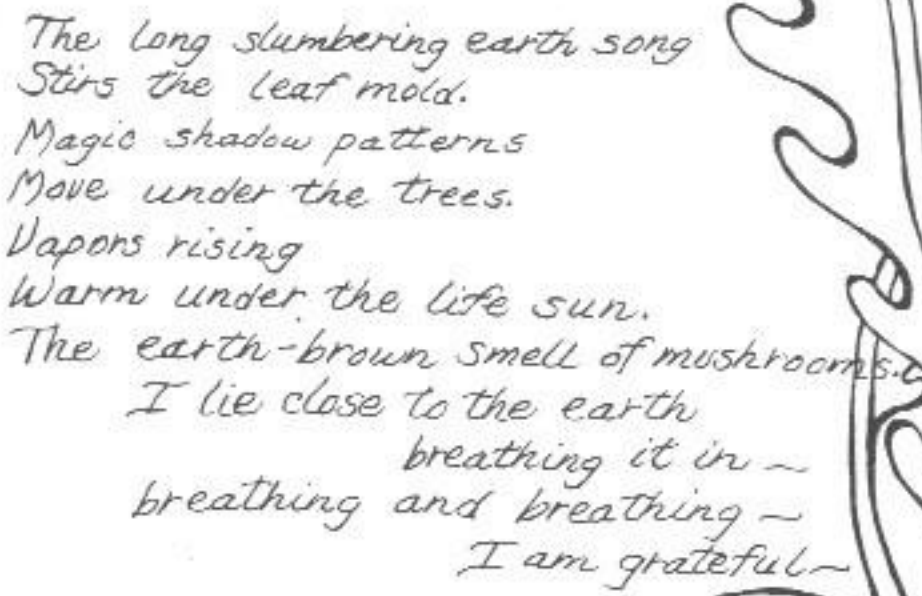 The long slumbering earth song
Stirs the leaf mold.
Magic shadow patterns
Move under the trees.
Vapors rising
Warm under the life sun.
The earth-brown smell of mushrooms.
I lie close to the earth
breathing it in ~
breathing and breathing ~
I am grateful ~